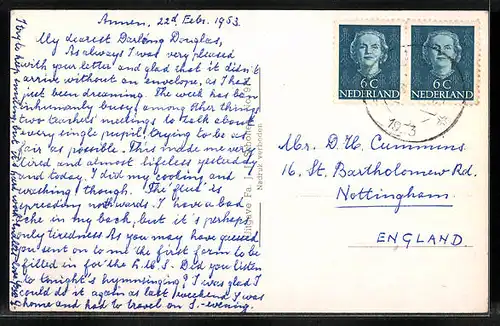 Annen, 22d Febr. 1953.
My dearest Darling Douglas,
As always I was very pleased
with your letter and glad that it didn't
arrive without an envelope, as I had
just been dreaming. The week has been
inhumanly busy, among other things
two teachers meetings to talk about
every single pupil, trying to be as
fair as possible. This made me very
tired and almost lifeless yesterday
and today. I did my cooking and
washing though. The 'flue' is
spreading northwards. I have a bad
ache in my back, but it's perhaps
only tiredness. As you may have guessed
you sent on to me the first form to be
filled in for the L.M.S. Did you listen
to tonight's hymnsinging? I was glad I
could do it again as last weekend I was
home and had to travel on S.-evening.
Uitgave Fa.
Nadruk verboden
6 C
NEDERLAND
6 C
NEDERLAND
Mr. D. H. Cummins
16, St. Bartholomew Rd.
Nottingham
ENGLAND.